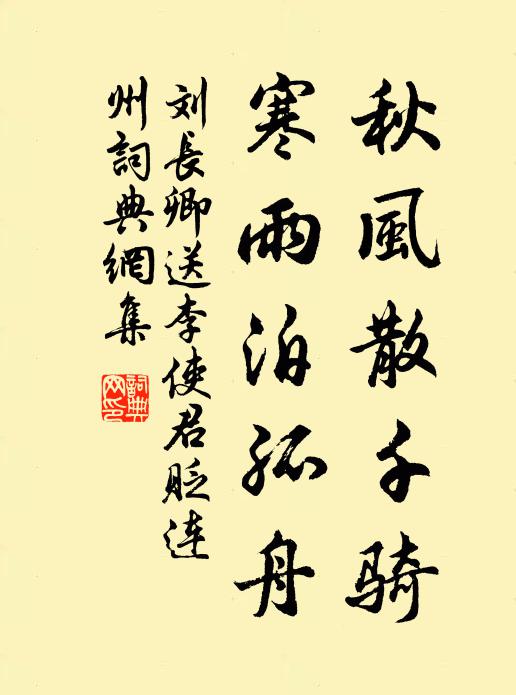 秋風散千騎
寒雨泊孤舟
刘長卿送李使君貶連
州詞典網集
詞典
网印